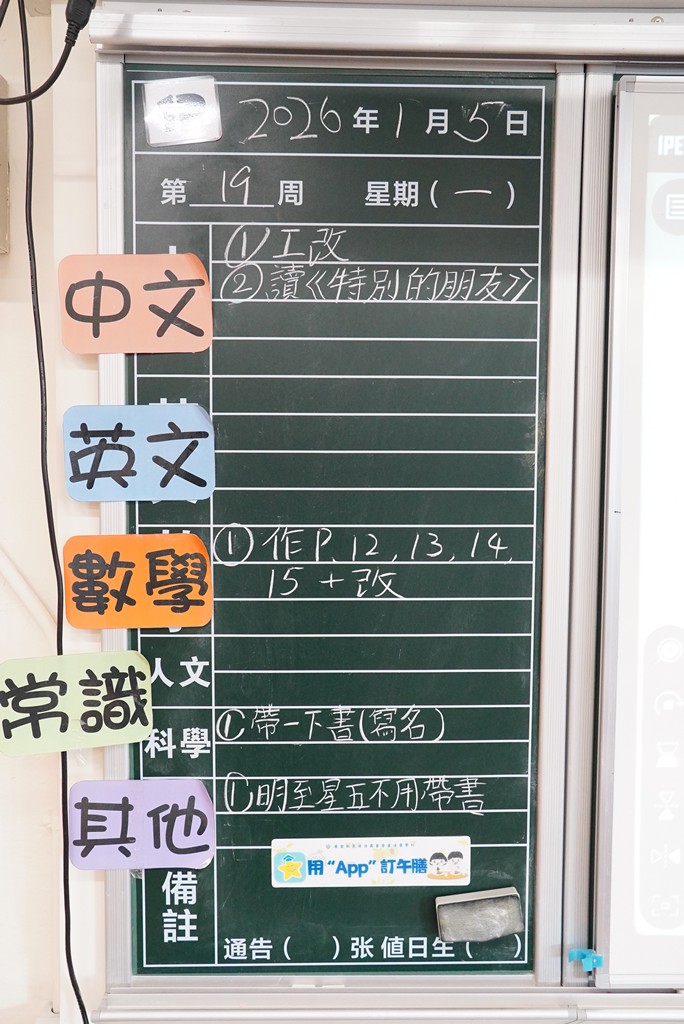 2026年1月5日
第 19 周 星期(一)
① 工改
中文
② 讀《特別的朋友》
英文
數學
① 作P. 12, 13, 14,
15 + 改
人文
常識
科學
① 帶一下書(寫名)
其他
① 明至星五不用帶書
用“App”訂午膳
備註
通告( )张 值日生( )